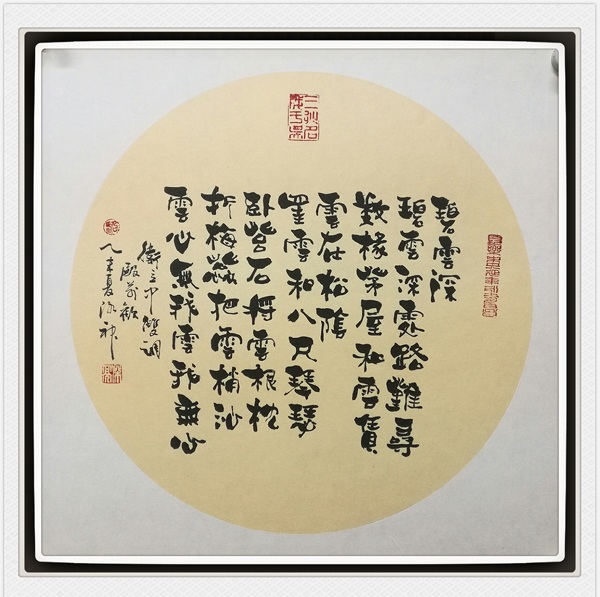 碧雲深
碧雲深處路難尋
數椽茅屋和雲賃
雲在松陰
罣雲和八尺琴瑟
卧苔石將雲根枕
折梅蕊把雲梢沁
雲心無我雲我無心
衛立中雙調
殿前歡
乙未夏